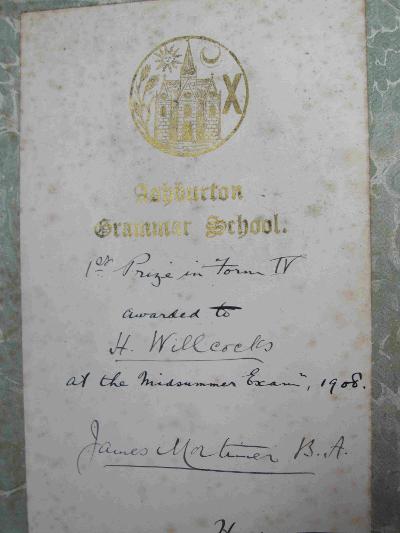 Ashburton
Grammar School.
1st Prize in Form IV
awarded to
H. Willcocks
at the Midsummer Examn, 1908.
James Mortimer B.A.